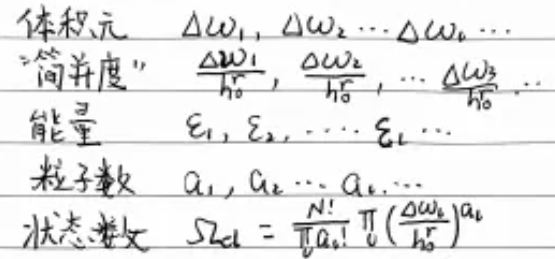 体积元 Δω₁, Δω₂ ⋯ Δωₗ ⋯
"简并度" Δω₁/h₀ʳ, Δω₂/h₀ʳ, ⋯ Δω₃/h₀ʳ ⋯
能量 ε₁, ε₂, ⋯⋯ εₗ ⋯
粒子数 a₁, a₂ ⋯ aₗ ⋯⋯
状态数 Ω_cl = N!/∏ₗaₗ! ∏ₗ(Δωₗ/h₀ʳ)^aₗ